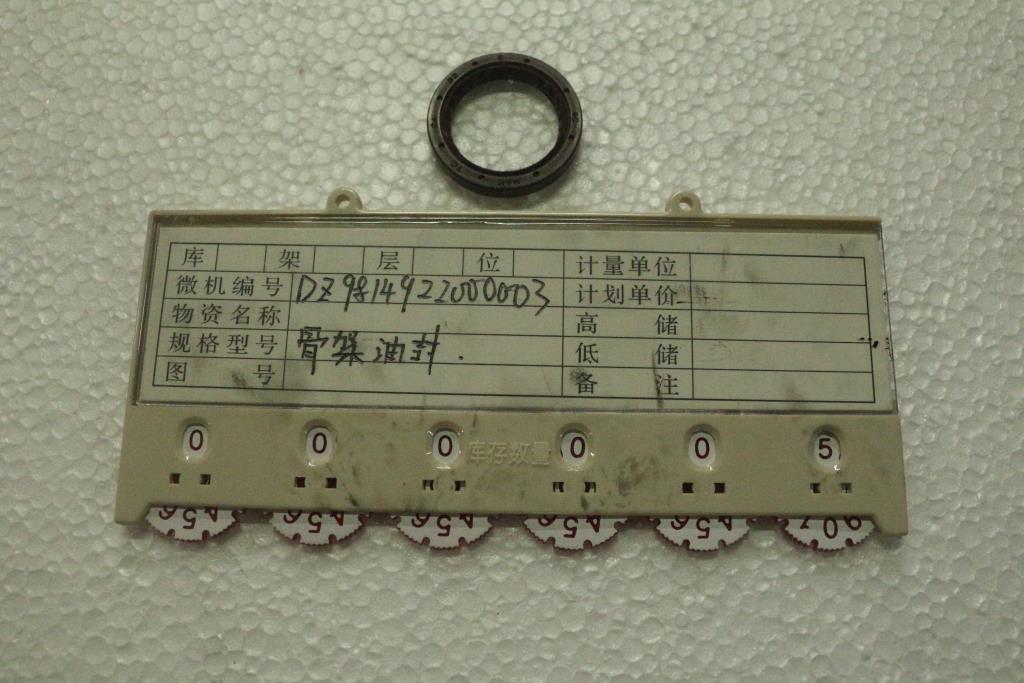 库 架 层 位 计量单位
微机编号 DZ9814922000003 计划单价
物资名称 高 储
规格型号 骨架油封. 低 储
图 号 备 注
0 0 0 库存数量 0 0 5
456 456 456 456 456 901